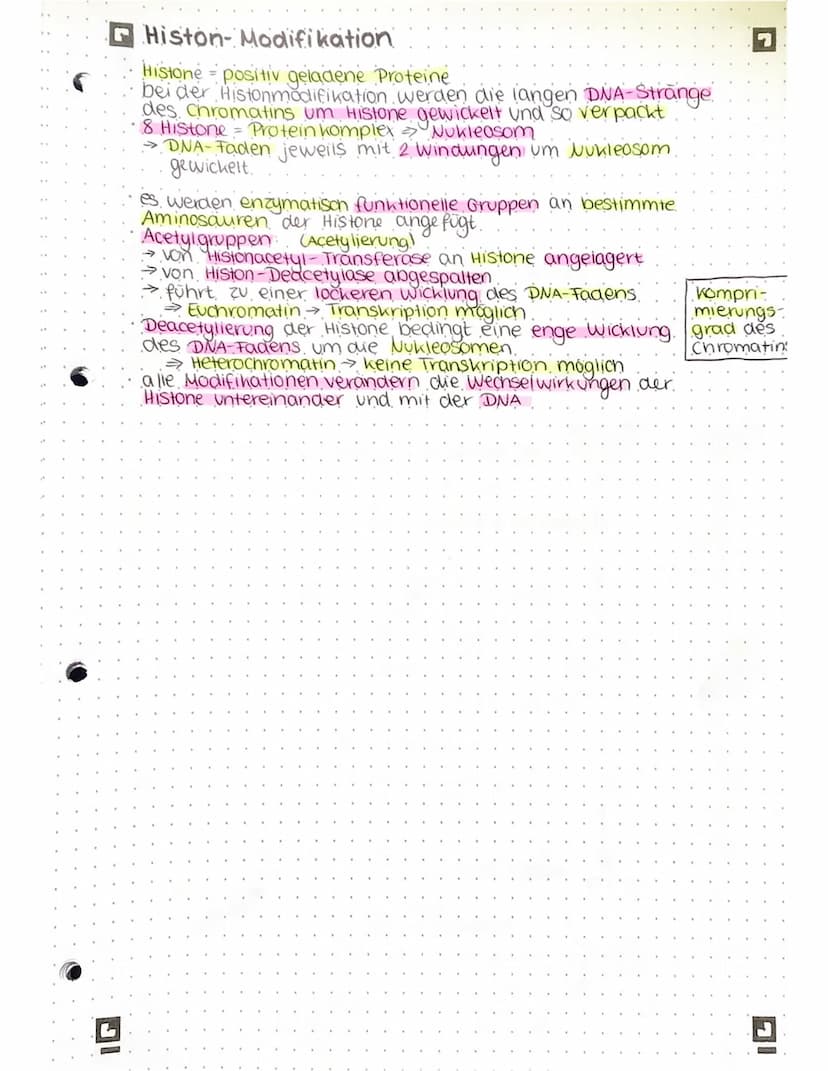 Histon-Modifikation
Histone = positiv geladene Proteine
bei der Histonmodifikation werden die langen DNA-Stränge
des Chromatins um Histone gewickelt und so verpackt
8 Histone = Proteinkomplex ⇒ Nukleosom
→ DNA-Faden jeweils mit 2 Windungen um Nukleosom
gewickelt
es werden enzymatisch funktionelle Gruppen an bestimmte
Aminosäuren der Histone angefügt
Acetylgruppen (Acetylierung)
→ von Histonacetyl-Transferase an Histone angelagert
→ von Histon-Deacetylase abgespalten
→ führt zu einer lockeren Wicklung des DNA-Fadens
⇒ Euchromatin → Transkription möglich
Deacetylierung der Histone bedingt eine enge Wicklung
des DNA-Fadens um die Nukleosomen
⇒ Heterochromatin → keine Transkription möglich
alle Modifikationen verändern die Wechselwirkungen der
Histone untereinander und mit der DNA
Kompri-
mierungs-
grad des
Chromatins